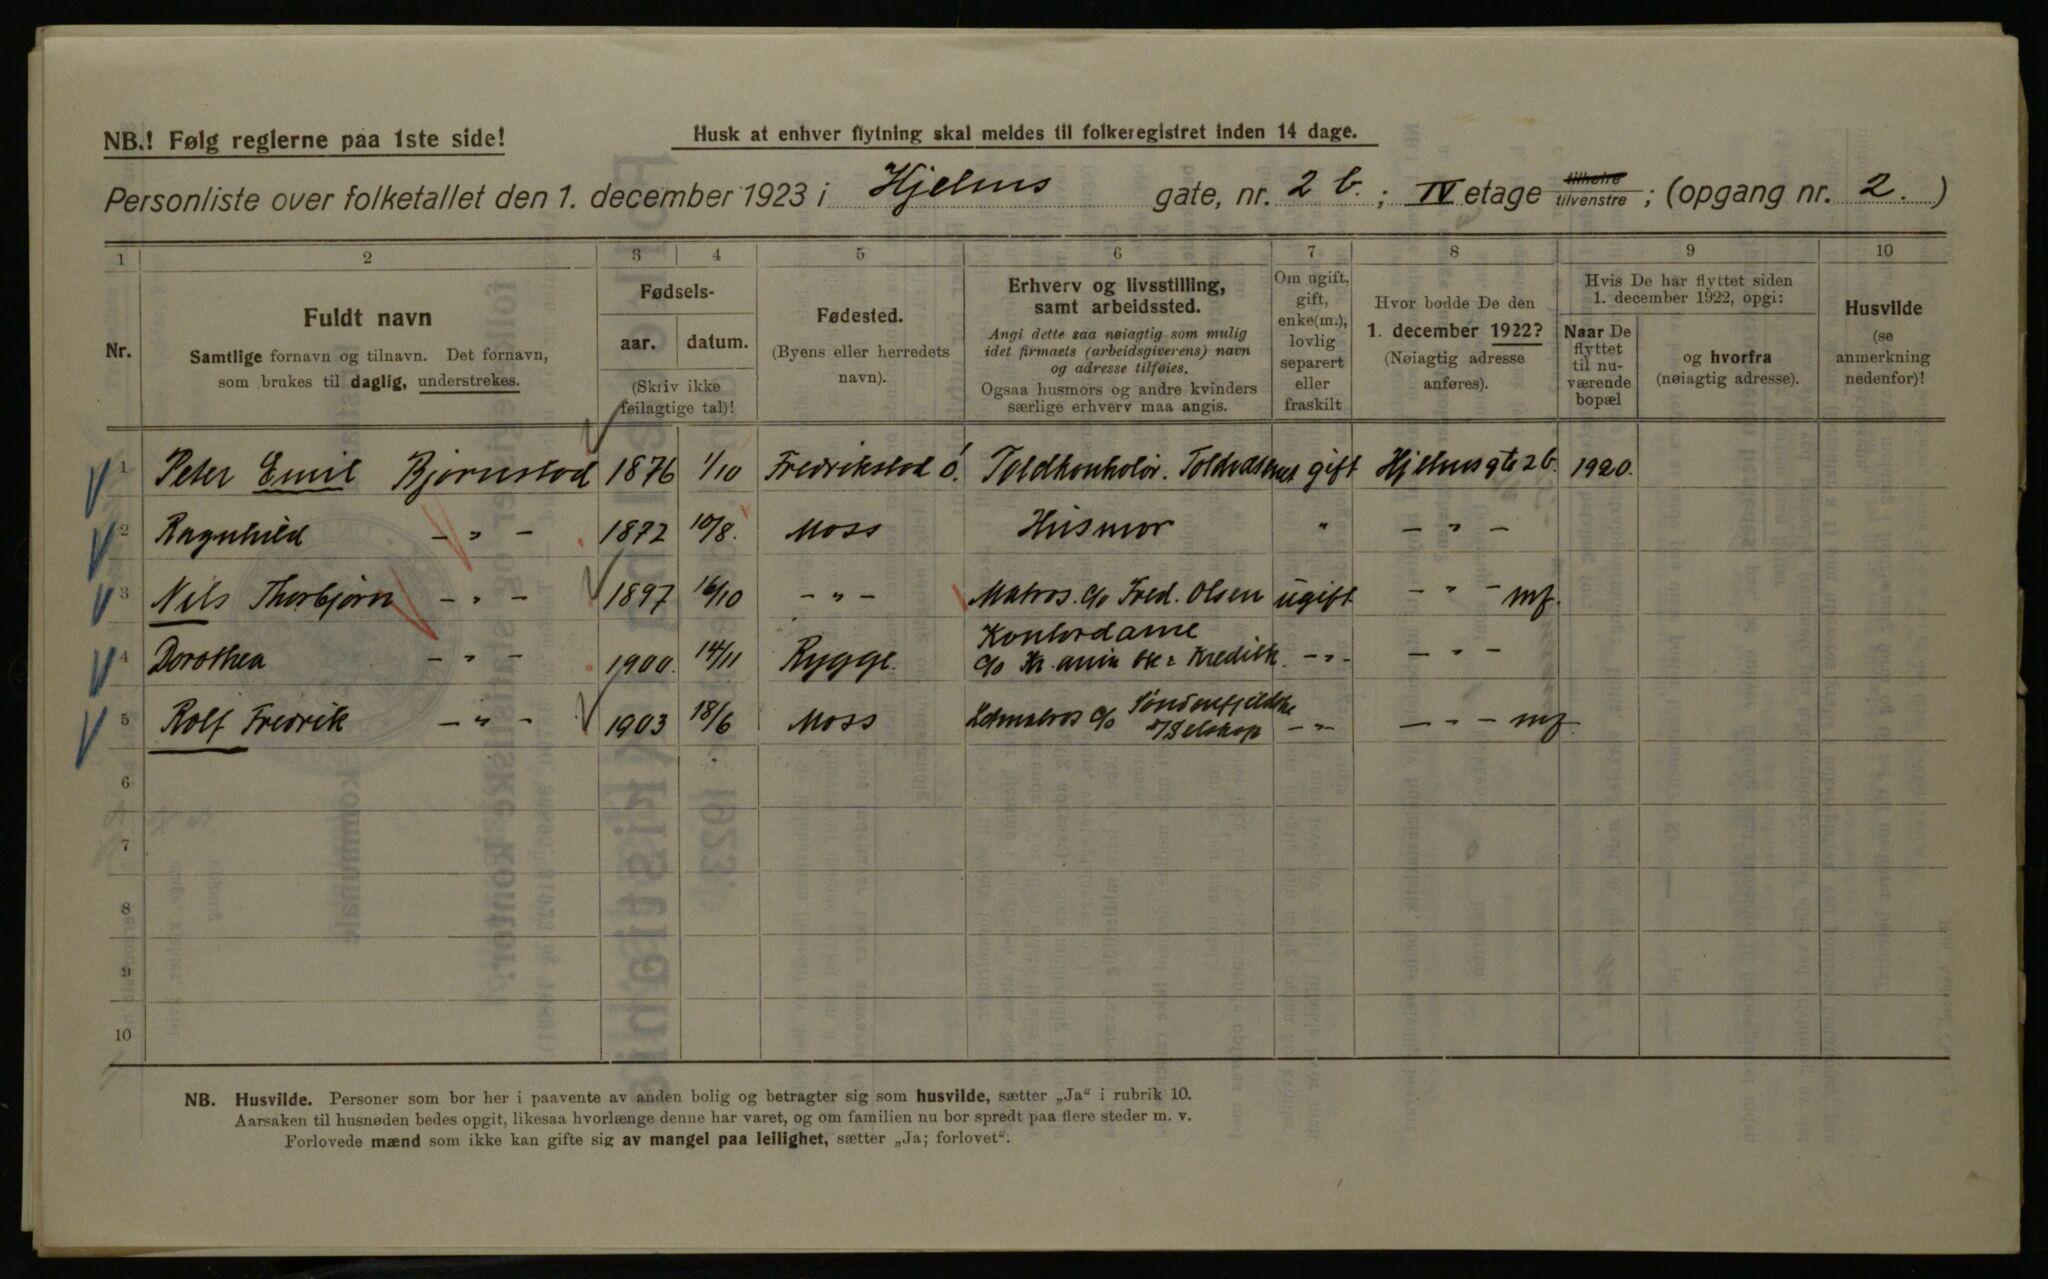 NB.! Følg reglerne paa 1ste side!
Husk at enhver flytning skal meldes til folkeregistret inden 14 dage.
Personliste over folketallet den 1. december 1923 i Hjelms gate, nr. 2 b.; IV etage tilhøire tilvenstre; (opgang nr. 2.)
1 2 3 4 5 6 7 8 9 10
Nr.
Fuldt navn
Samtlige fornavn og tilnavn. Det fornavn,
som brukes til daglig, understrekes.
Fødsels-
aar. datum.
(Skriv ikke
feilagtige tal)!
Fødested.
(Byens eller herredets
navn).
Erhverv og livsstilling,
samt arbeidssted.
Angi dette saa nøiagtig som mulig
idet firmaets (arbeidsgiverens) navn
og adresse tilføies.
Ogsaa husmors og andre kvinders
særlige erhverv maa angis.
Om ugift,
gift,
enke(m.),
lovlig
separert
eller
fraskilt
Hvor bodde De den
1. december 1922?
(Nøiagtig adresse
anføres).
Hvis De har flyttet siden
1. december 1922, opgi:
Naar De
flyttet
til nu-
værende
bopæl
og hvorfra
(nøiagtig adresse).
Husvilde
(se
anmerkning
nedenfor)!
1 Peter Emil Bjørnstad 1876 1/10 Fredrikstad Ö. Toldkontolør. Toldvæsenet gift Hjelmsgte 2b. 1920.
2 Ragnhild — " — 1872 10/8. Moss Husmor " — " —
3 Nils Thorbjørn — " — 1897 16/10 — " — Matros. c/o Fred. Olsen ugift — " — mf.
4 Dorothea — " — 1900. 14/11 Rygge. Kontordame — " — — " —
c/o Kr.ania Kreditk.
5 Rolf Fredrik — " — 1903 18/6 Moss c/o Søndenfjeldske — " — — " — mf.
D/Selskap
6
7
8
9
10
NB. Husvilde. Personer som bor her i paavente av anden bolig og betragter sig som husvilde, sætter „Ja“ i rubrik 10.
Aarsaken til husnøden bedes opgit, likesaa hvorlænge denne har varet, og om familien nu bor spredt paa flere steder m. v.
Forlovede mænd som ikke kan gifte sig av mangel paa leilighet, sætter „Ja; forlovet“.